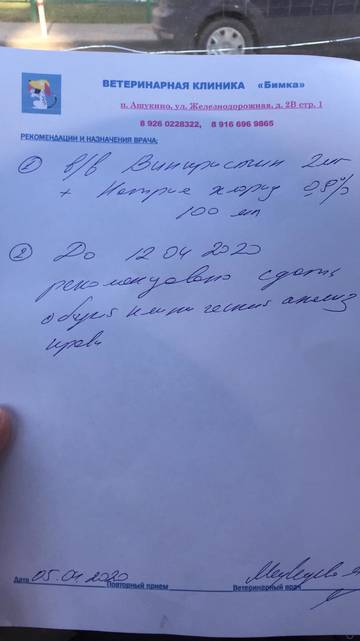 ВЕТЕРИНАРНАЯ КЛИНИКА «Бимка»
п. Ашукино, ул. Железнодорожная, д. 2В стр. 1
8 926 0228322, 8 916 696 9865
РЕКОМЕНДАЦИИ И НАЗНАЧЕНИЯ ВРАЧА:
① в/в Винкристин 2мг
+ Натрия хлорид 0,9%
100 мл
② До 12 04 2020
рекомендовано сдать
общий клинический анализ
крови
Дата 05.04 2020 Повторный прием Ветеринарный врач